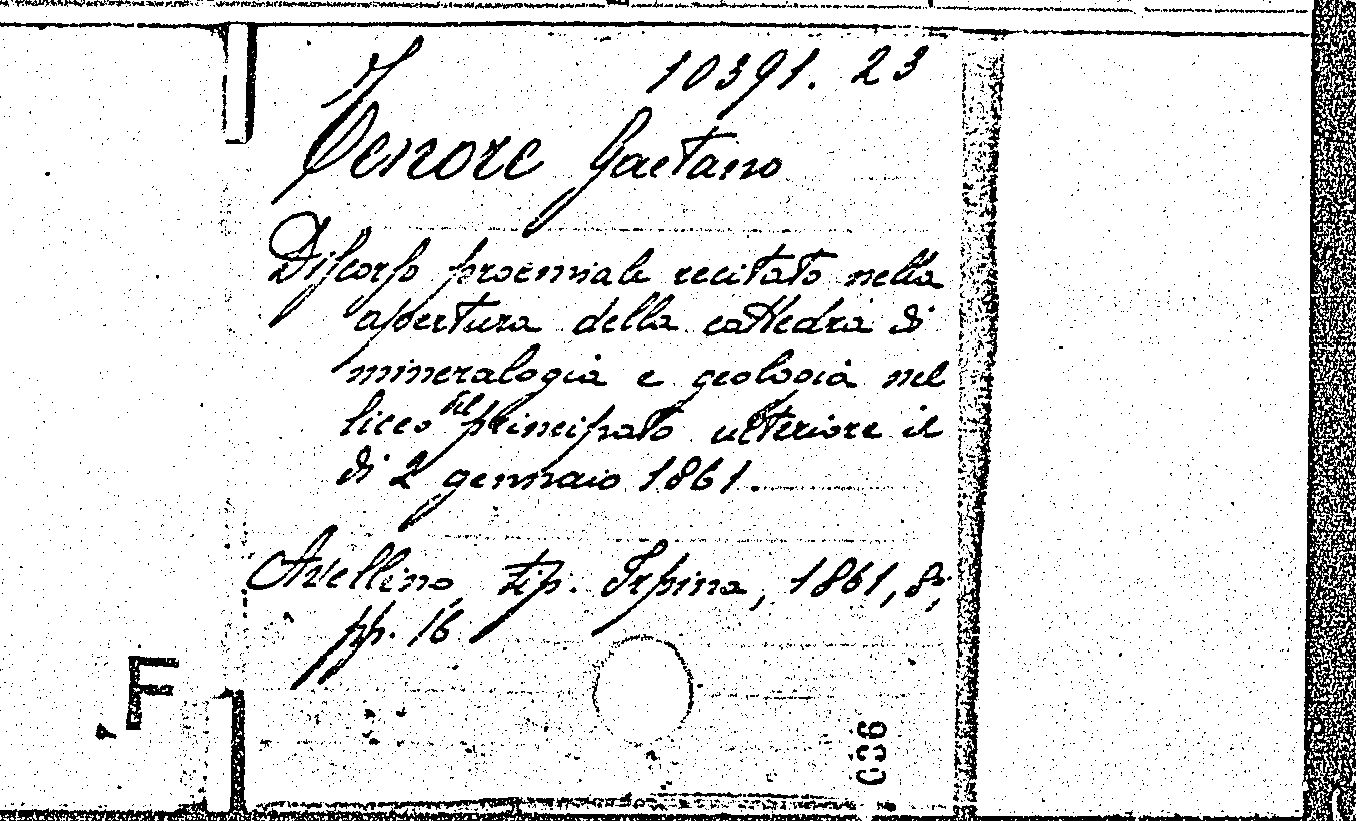 10391. 23
Tenore Gaetano
Discorso proemiale recitato nella
apertura della cattedra di
mineralogia e geologia nel
liceo del principato ulteriore il
dì 2 gennaio 1861.
Avellino, tip. Irpina, 1861, 8°,
pp. 16
F
036